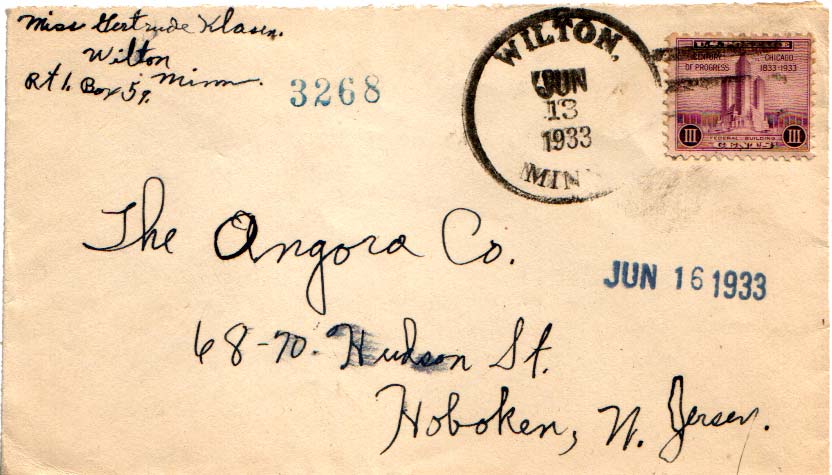 Miss Gertrude Klasen.
Wilton
Minn.
Rt 1. Box 59.
3268
WILTON,
JUN
13
1933
MINN
CENTURY OF PROGRESS
CHICAGO 1833-1933
III
III
FEDERAL BUILDING
CENTS
The Angora Co.
JUN 16 1933
68-70. Hudson St.
Hoboken, N. Jersey.